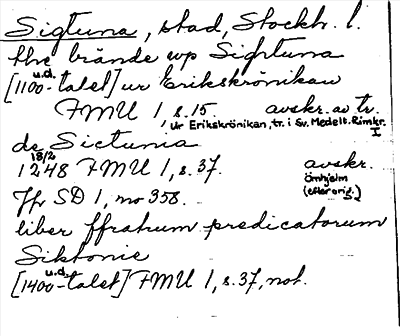 Sigtuna, stad, Stockh. l.
the brände up Sightuna
[1100-talet] u.d. ur Erikskrönikan
FMU 1, s. 15. avskr. av tr.
ur Erikskrönikan, tr. i Sv. Medelt. Rimkr. I
de Sictunia
18/2
1248 FMU 1, s. 37. avskr.
Örnhjelm
Jfr SD 1, no 358. (efter orig.)
liber ffratrum predicatorum
Siktonie
[1400-talet] u.d. FMU 1, s. 37, not.